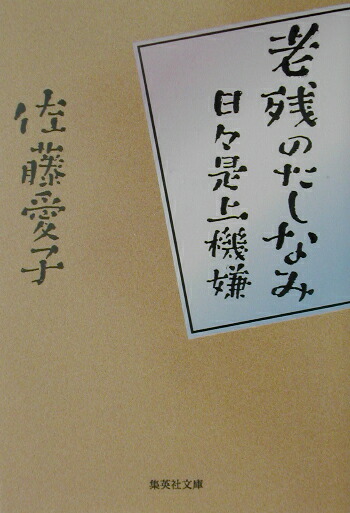 老残のたしなみ
日々是上機嫌
佐藤愛子
集英社文庫